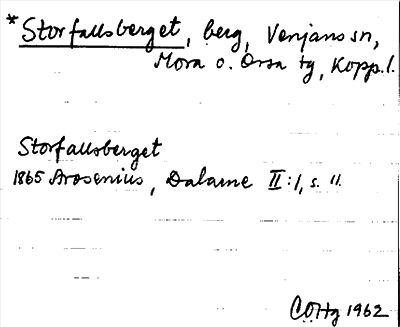 *Storfallsberget, berg, Venjans sn,
Mora o. Orsa tg, Kopp. l.
Storfallsberget
1865 Arosenius, Dalarne II:1, s. 11.
COHg 1962